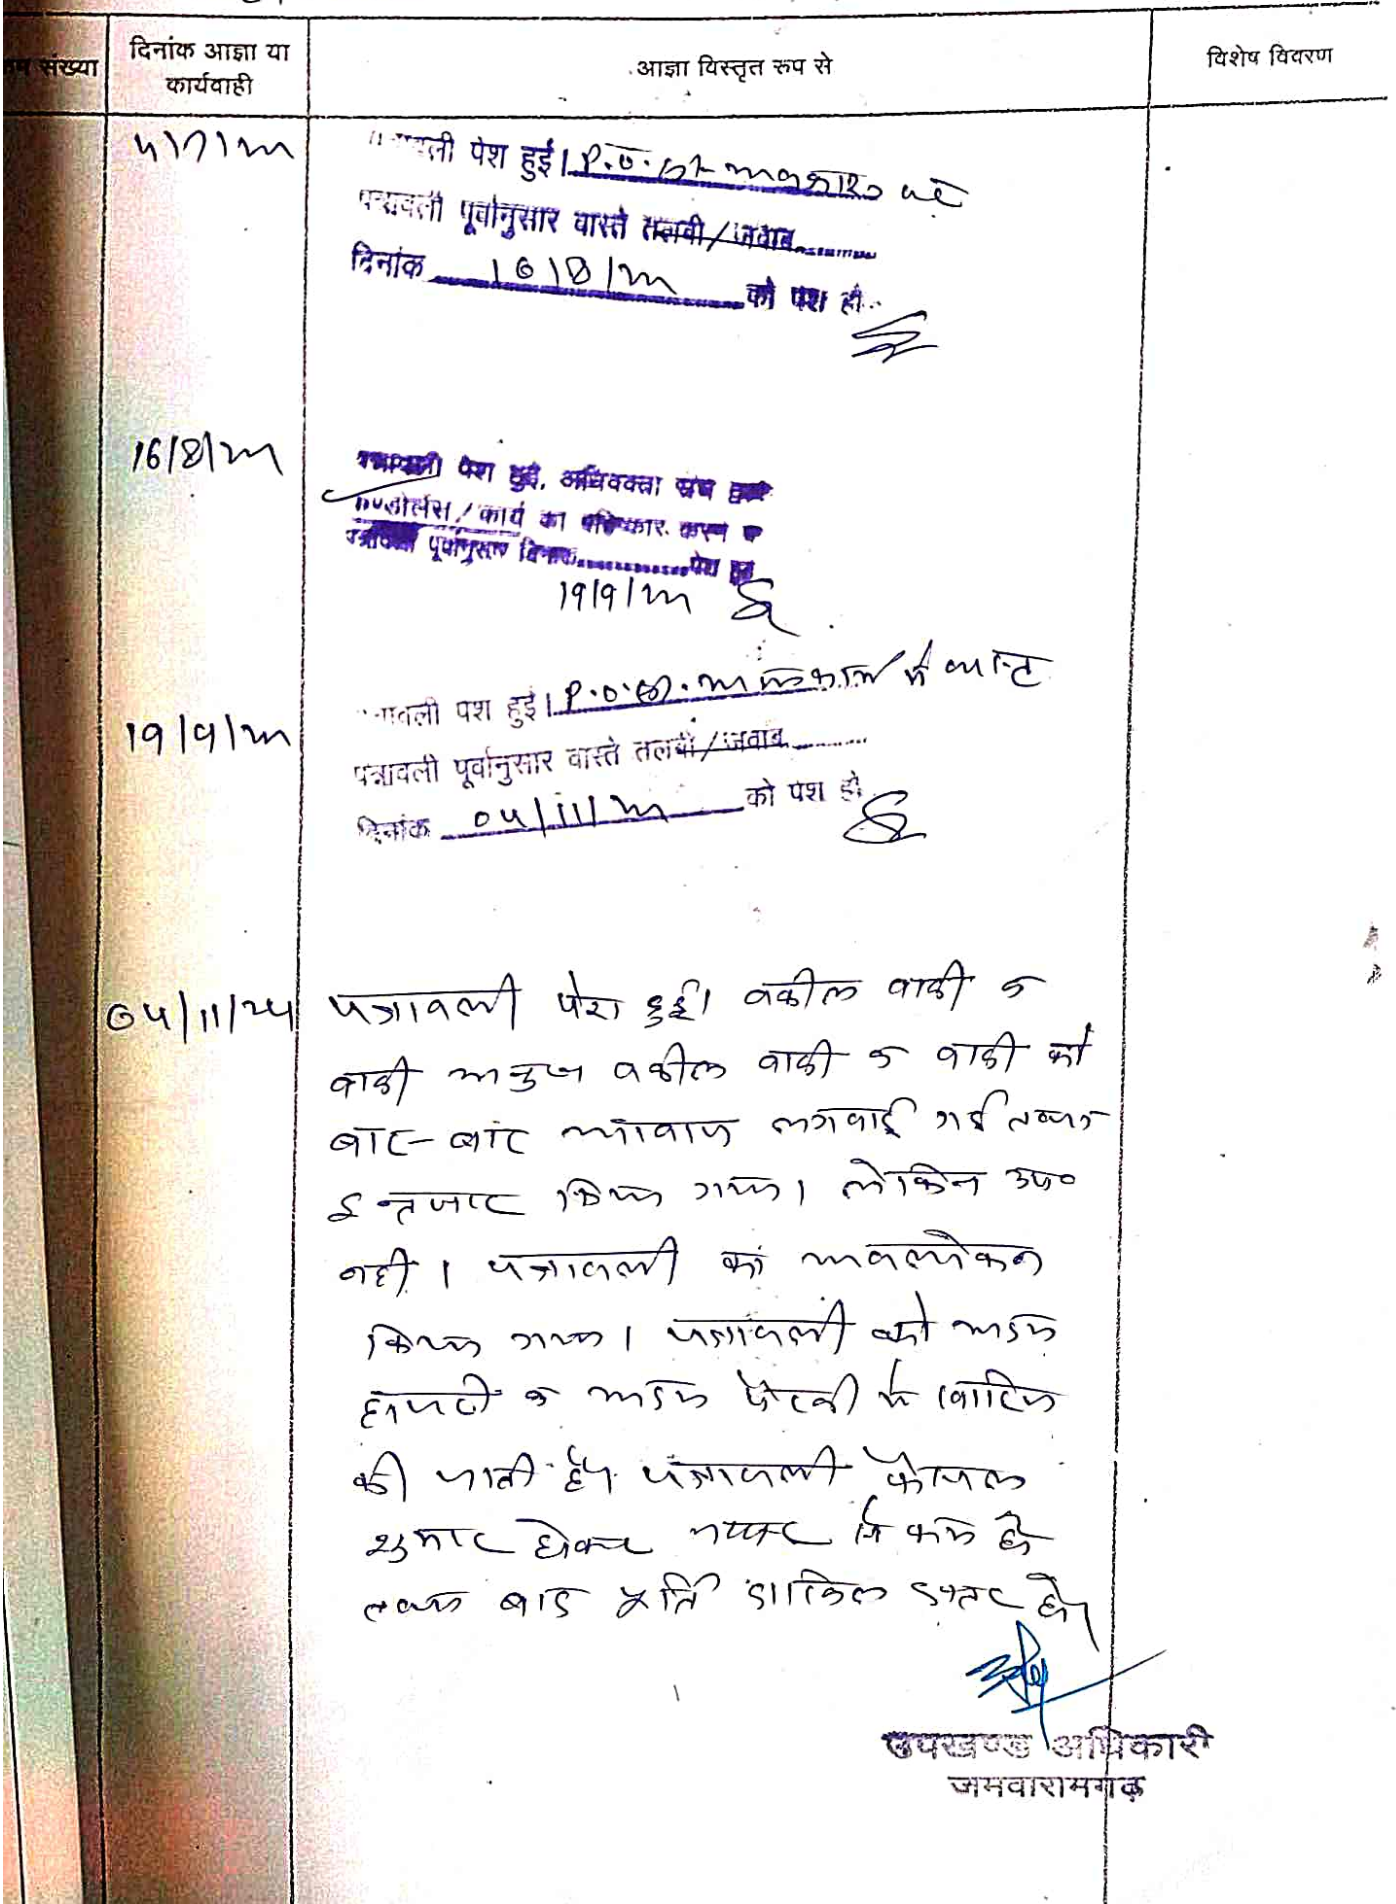 संख्या
दिनांक आज्ञा या
कार्यवाही
आज्ञा विस्तृत रूप से
विशेष विवरण
पेश हुई। P.O.
पत्रावली पूर्वानुसार वास्ते तलबी/जवाब
दिनांक 16/8/24 को पेश हो
16/8/24
पत्रावली पेश हुई, अधिवक्ता संघ
कार्य का
पत्रावली पूर्वानुसार दिनांक पेश हो
19/9/24
19/9/24
पेश हुई। P.O.
पत्रावली पूर्वानुसार वास्ते तलबी/जवाब
दिनांक 04/11/24 को पेश हो
04/11/24
पत्रावली पेश हुई। वकील वादी व
वादी अनु० वकील वादी व वादी को
बार-बार आवाज लगवाई गई तथा
इन्तजार किया गया। लेकिन उप०
नही। पत्रावली का अवलोकन
किया गया। पत्रावली को अदम
हाजरी व अदम पैरवी में खारिज
की जाती है। पत्रावली फैसल
शुमार होकर नम्बर से कम हो
बाद दाखिल दफ्तर हो।
उपखण्ड अधिकारी
जमवारामगढ़